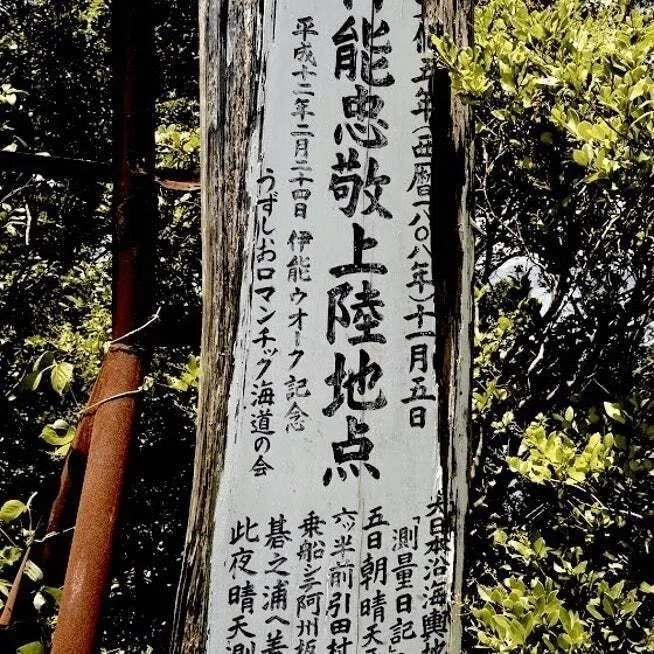 化五年(西暦一八〇八年)十一月五日
伊能忠敬上陸地点
平成十二年二月二十四日 伊能ウオーク記念
うずしおロマンチック海道の会
大日本沿海輿地
「測量日記」
五日朝晴天
六ツ半前引田村
乗船シ阿州坂
碁之浦へ着
此夜晴天測